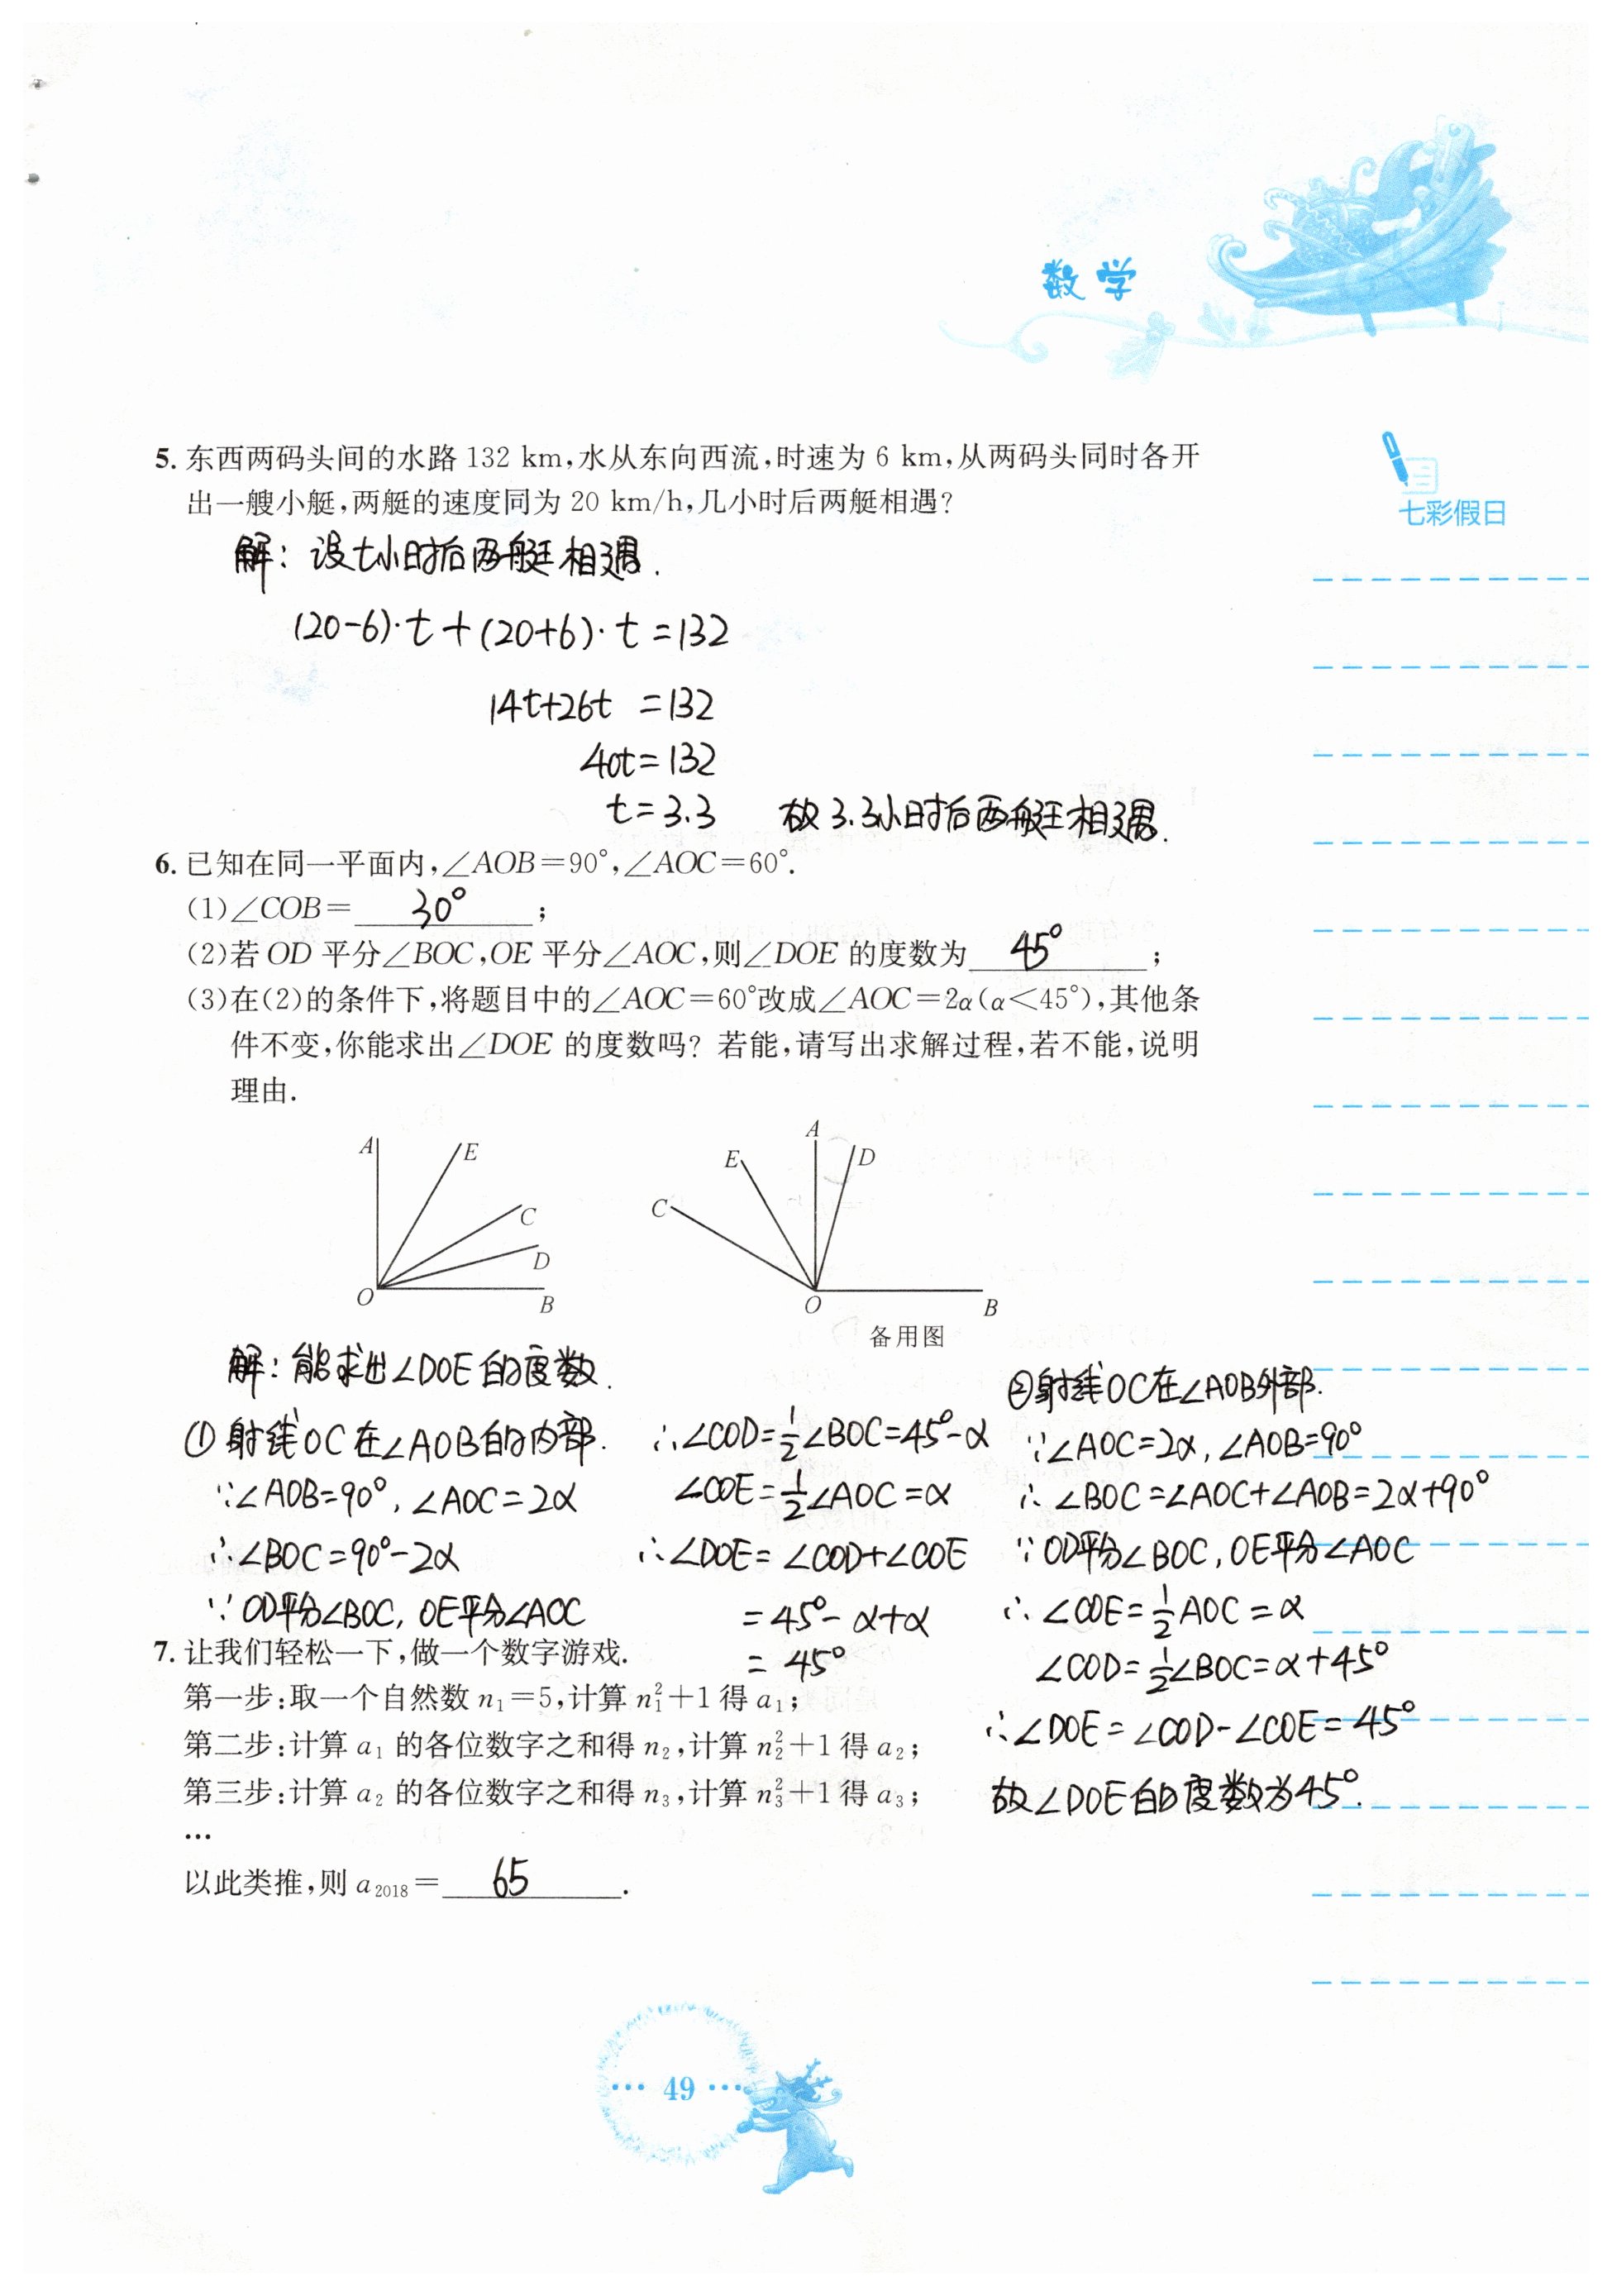 数学
七彩假日
5. 东西两码头间的水路 132 km,水从东向西流,时速为 6 km,从两码头同时各开
出一艘小艇,两艇的速度同为 20 km/h,几小时后两艇相遇?
解: 设t小时后两艇相遇.
(20-6)·t+(20+6)·t=132
14t+26t =132
40t=132
t=3.3 故3.3小时后两艇相遇.
6. 已知在同一平面内,∠AOB=90°,∠AOC=60°.
(1)∠COB= 30° ;
(2)若 OD 平分∠BOC,OE 平分∠AOC,则∠DOE 的度数为 45° ;
(3)在(2)的条件下,将题目中的∠AOC=60°改成∠AOC=2α(α<45°),其他条
件不变,你能求出∠DOE 的度数吗? 若能,请写出求解过程,若不能,说明
理由.
A
E
C
D
O
B
A
E
D
C
O
B
备用图
解: 能求出∠DOE的度数.
①射线OC在∠AOB的内部.
∵∠AOB=90°, ∠AOC=2α
∴∠BOC=90°-2α
∵OD平分∠BOC, OE平分∠AOC
∴∠COD=½∠BOC=45°-α
∠COE=½∠AOC=α
∴∠DOE=∠COD+∠COE
=45°-α+α
=45°
②射线OC在∠AOB外部.
∵∠AOC=2α, ∠AOB=90°
∴∠BOC=∠AOC+∠AOB=2α+90°
∵OD平分∠BOC, OE平分∠AOC
∴∠COE=½AOC=α
∠COD=½∠BOC=α+45°
∴∠DOE=∠COD-∠COE=45°
故∠DOE的度数为45°.
7. 让我们轻松一下,做一个数字游戏.
第一步:取一个自然数 n₁=5,计算 n₁²+1 得 a₁;
第二步:计算 a₁ 的各位数字之和得 n₂,计算 n₂²+1 得 a₂;
第三步:计算 a₂ 的各位数字之和得 n₃,计算 n₃²+1 得 a₃;
…
以此类推,则 a₂₀₁₈= 65 .
··· 49 ···